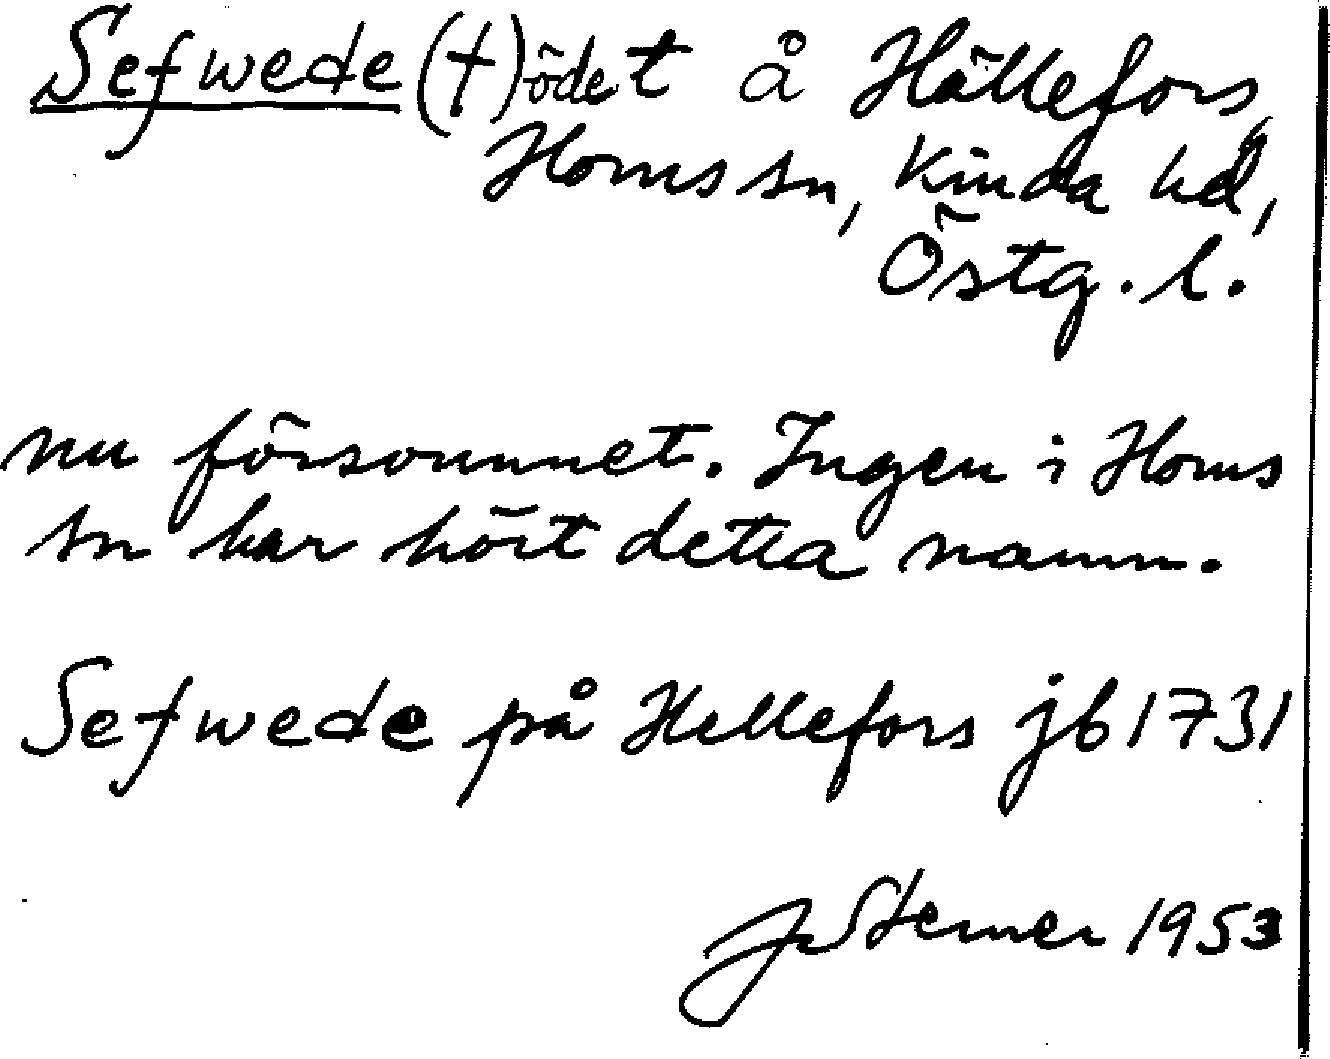 Sefwede (†) ödet å Hällefors,
Horns sn, Kinda hd,
Östg. l.
nu försvunnet. Ingen i Horns
sn har hört detta namn.
Sefwede på Hellefors jb 1731
Sterner 1953